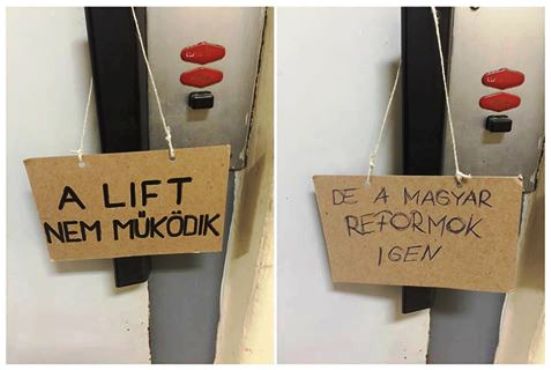 A LIFT
NEM MŰKÖDIK
DE A MAGYAR
REFORMOK
IGEN